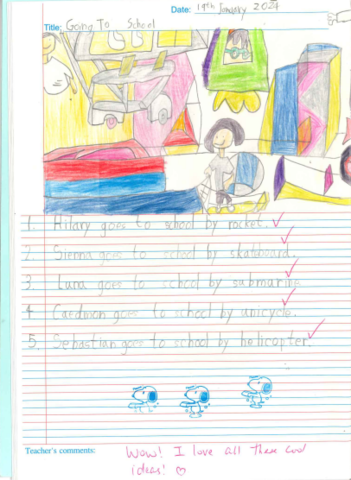 Date: 19th January 2024
Title: Going To School
1. Hilary goes to school by rocket.
2. Sienna goes to school by skateboard.
3. Luna goes to school by submarine
4. Caedmon goes to school by unicycle.
5. Sebastian goes to school by helicopter.
Teacher's comments: Wow! I love all these cool
ideas!